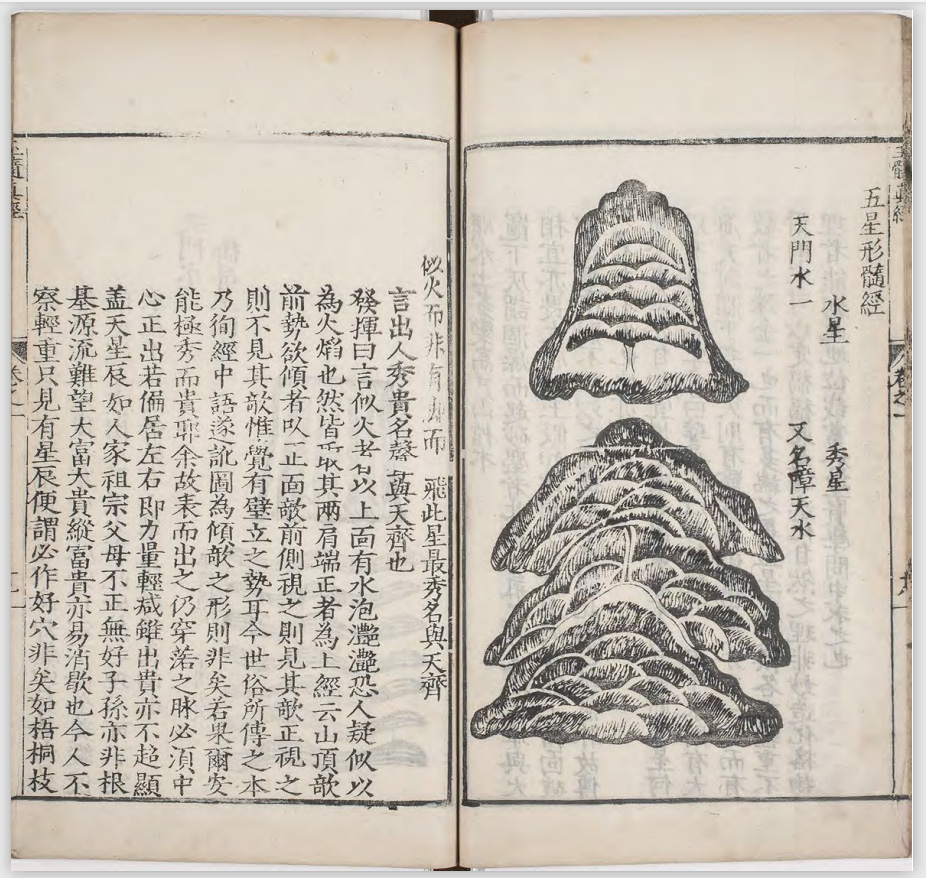 髓真經
卷之
五星形髓經
水星 秀星
天門水一 又名障天水
似火而非有而 飛此星最秀名與天齊
言出人秀貴名與天齊也
發揮曰言似火者以上面有水泡灔灔恐人疑似以
為火焰也然皆取其兩肩端正者為上經云山頂欹
前勢欲傾者以正面欹前側視之則見其欹正視之
則不見其欹惟覺有壁立之勢耳今世俗所傳之本
乃徇經中語遂訛圖為傾欹之形則非矣若果爾安
能極秀而貴耶余故表而出之仍穿落之脉必湏中
心正出若偏居左右即力量輕減雖出貴亦不超顯
盖天星辰如人家祖宗父母不正無好子孫亦非根
基源流難望大富大貴縱富貴亦易消歇也今人不
察輕重只見有星辰便謂必作好穴非矣如梧桐枝
髓真經
卷之